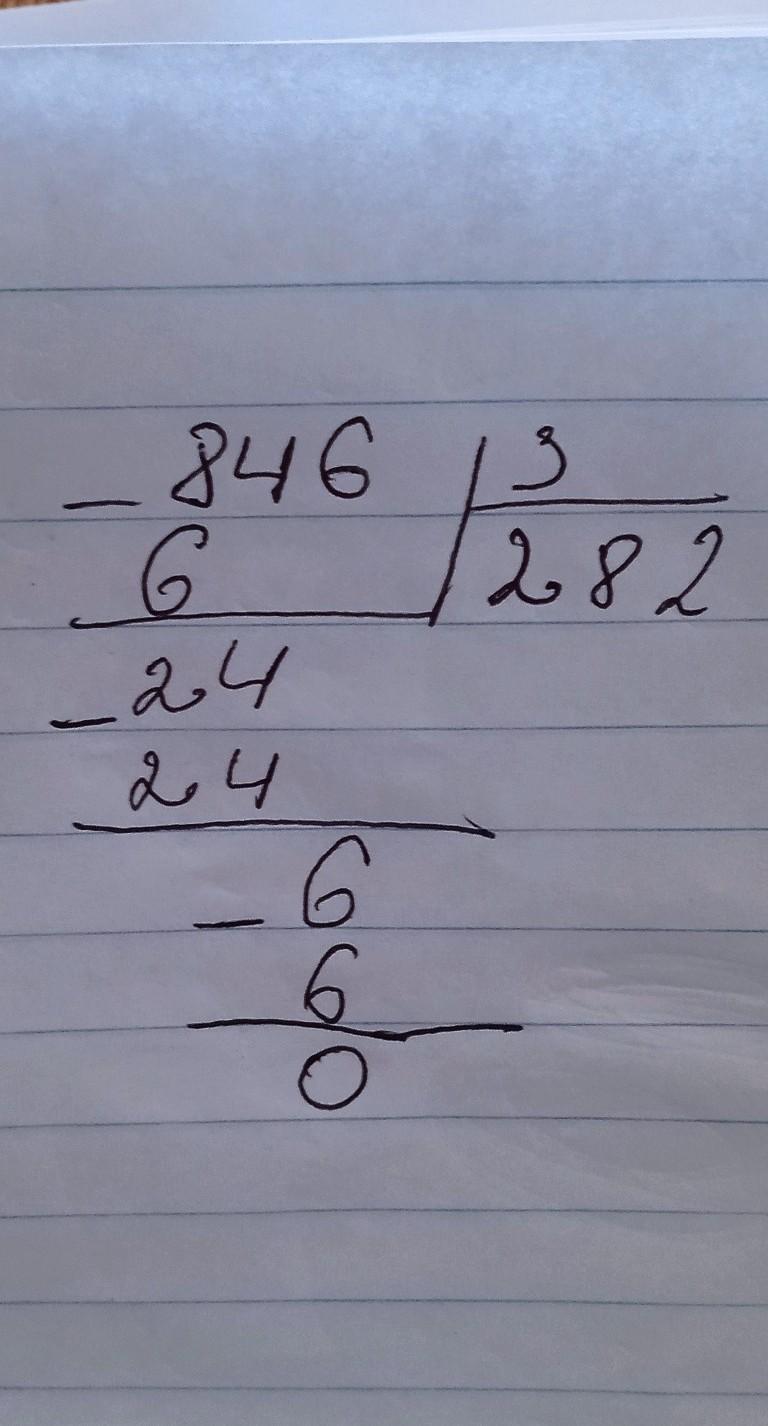 - 846 | 3
6 282
- 24
24
- 6
6
0